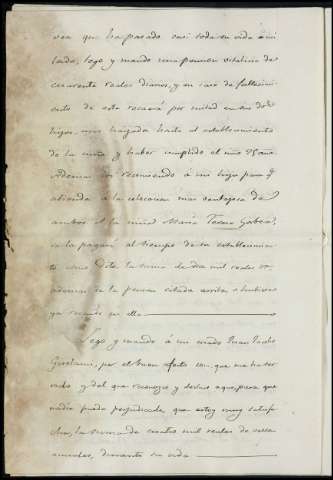 vea que ha pasado casi toda su vida á mi
lado, lego y mando una pension vitalicia de
cuarenta reales diarios, y en caso de fallecimi-
ento de esta recaerá por mitad en sus dos
hijos, cuya llegada hasta el establecimiento
de la niña y haber cumplido el niño 25 años
Ademas recomiendo á mi hijo para q
atienda á la colocacion mas ventajosa de
ambos. A la niña Maria Teresa
se la pagará al tiempo de su establecimien-
to como Dote, la suma de diez mil reales vn
ademas de la pension citada arriba
ya recaido en ella
Lego y mando á mi criado Juan
por el buen afecto con que me ha ser-
vido y del que reconozco y declaro aqui, para que
nadie pueda perjudicarle, que estoy muy satisfe-
cho, la suma de cuatro mil reales de vellon
anuales, durante su vida